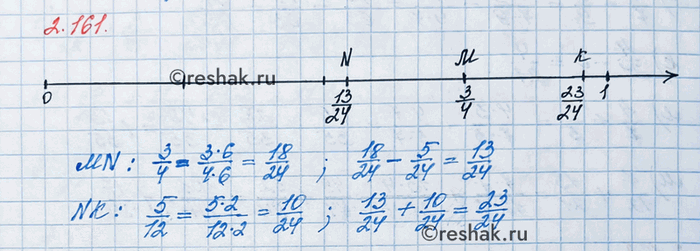 2.161.
N M K
©reshak.ru
0 13/24 3/4 23/24 1
MN: 3/4 = 3·6/4·6 = 18/24 ; 18/24 - 5/24 = 13/24
NK: 5/12 = 5·2/12·2 = 10/24 ; 13/24 + 10/24 = 23/24
©reshak.ru